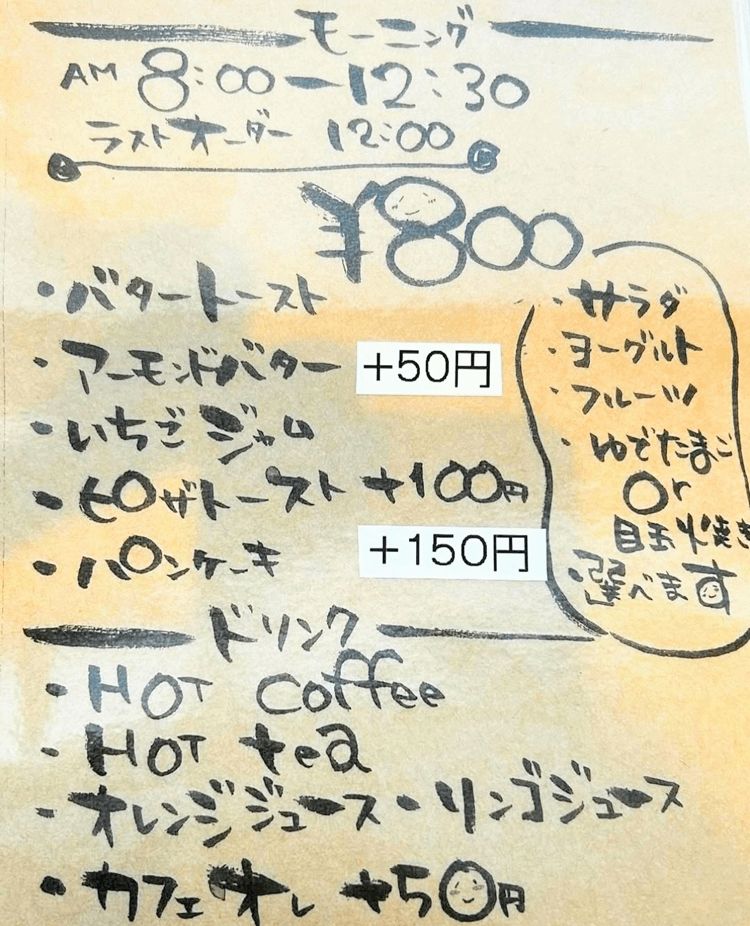 モーニング
AM 8:00ー12:30
ラストオーダー 12:00
¥800
・バタートースト
・アーモンドバター +50円
・いちごジャム
・ピザトースト +100円
・パンケーキ +150円
・サラダ
・ヨーグルト
・フルーツ
・ゆでたまご
Or
目玉焼き
選べます
ドリンク
・HOT coffee
・HOT tea
・オレンジジュース・リンゴジュース
・カフェオレ +50円